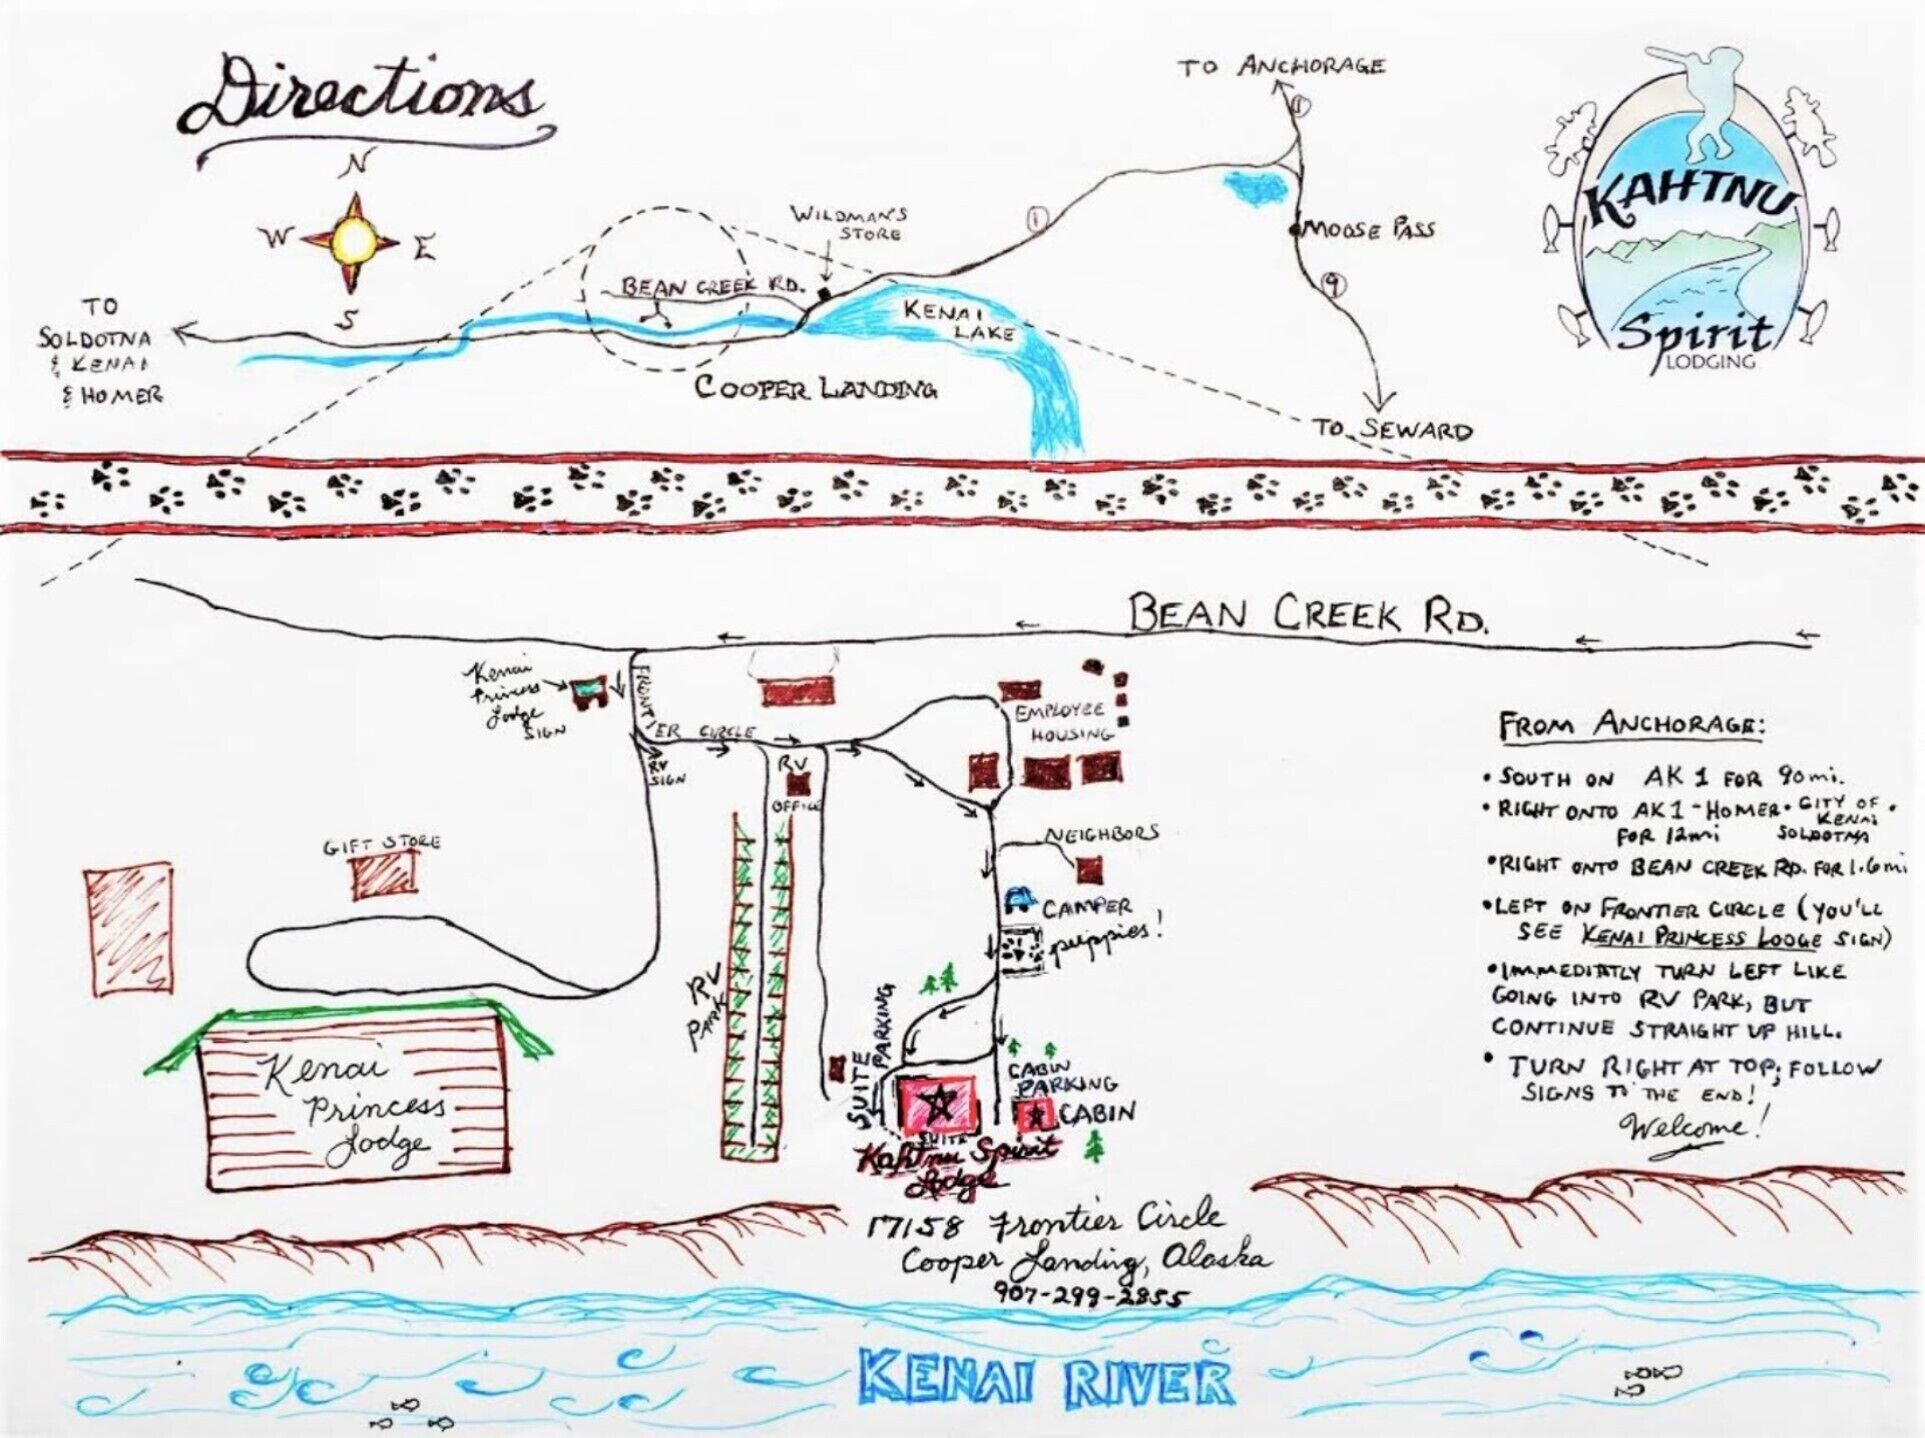 Directions
N
W
E
S
TO
SOLDOTNA
& KENAI
& HOMER
BEAN CREEK RD.
WILDMAN'S
STORE
1
KENAI
LAKE
COOPER LANDING
TO ANCHORAGE
1
MOOSE PASS
9
TO SEWARD
KAHTNU
Spirit
LODGING
BEAN CREEK RD.
Kenai
Princess
Lodge
SIGN
FRONTIER CIRCLE
RV
SIGN
RV
OFFICE
EMPLOYEE
HOUSING
NEIGHBORS
CAMPER
puppies!
GIFT STORE
RV
PARK
SUITE
PARKING
CABIN
PARKING
CABIN
SUITE
Kahtnu Spirit
Lodge
Kenai
Princess
Lodge
FROM ANCHORAGE:
• SOUTH ON AK 1 FOR 90 mi.
• RIGHT ONTO AK 1 - HOMER • CITY OF •
KENAI
FOR 12mi SOLDOTNA
• RIGHT ONTO BEAN CREEK RD. FOR 1.6 mi
• LEFT ON FRONTIER CIRCLE (YOU'LL
SEE KENAI PRINCESS LODGE SIGN)
• IMMEDIATLY TURN LEFT LIKE
GOING INTO RV PARK, BUT
CONTINUE STRAIGHT UP HILL.
• TURN RIGHT AT TOP; FOLLOW
SIGNS TO THE END!
Welcome!
17158 Frontier Circle
Cooper Landing, Alaska
907-299-2855
KENAI RIVER